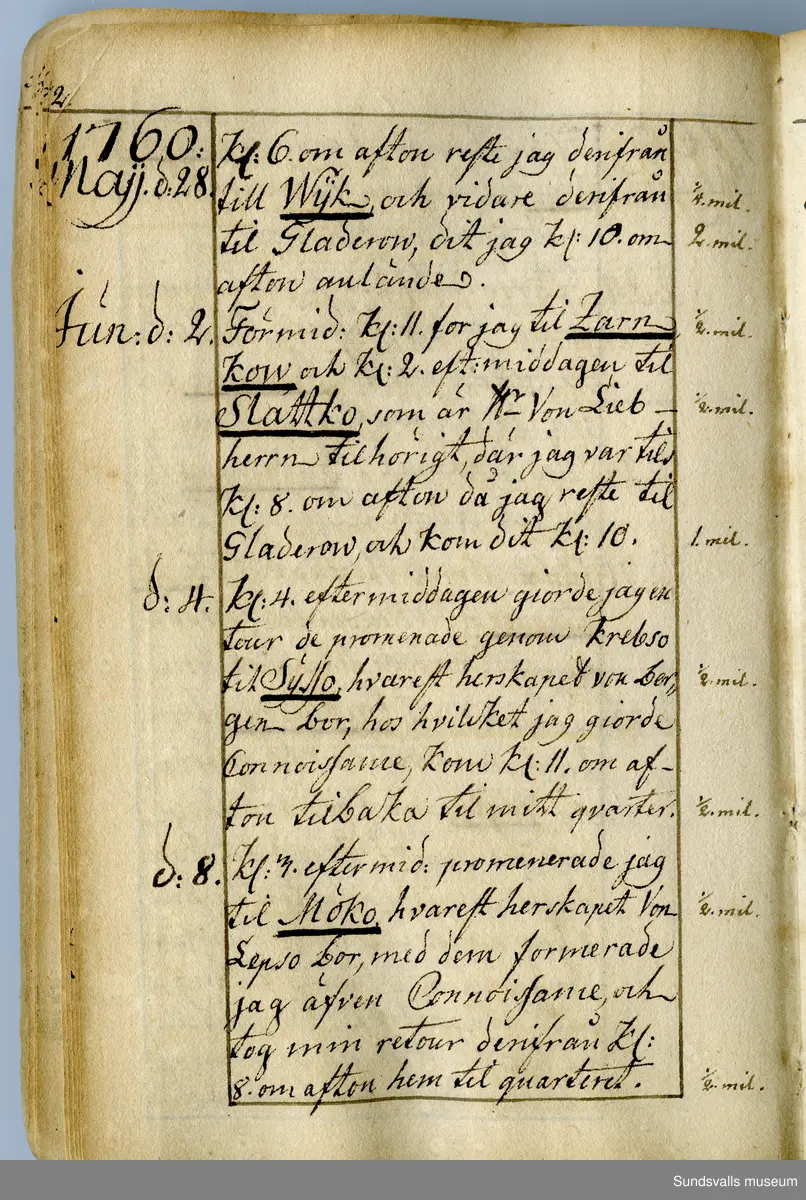 2
1760:
Majj. d: 28. Kl: 6. om afton reste jag derifrån
till Wijk, och vidare derifrån ¼. mil.
til Gladerow, dit jag kl: 10. om 2. mil.
afton anlände.
Jun: d: 2. Förmid: kl: 11. for jag til Zarn ½. mil.
kow och kl: 2. eft: middagen til
Slattko, som är Hr Von Lieb- ½. mil.
herrn tilhörigt, där jag var tils
kl: 8. om afton då jag reste til
Gladerow, och kom dit kl: 10. 1. mil.
d: 4. Kl: 4. eftermiddagen giorde jag en
tour de promenade genom Krebso
til Sysso, hvarest herskapet von Bor,, ½. mil.
gen bor, hos hvilket jag giorde
Connoissame, kom kl: 11. om af-
ton tilbaka til mitt qvarter. ½. mil.
d: 8. Kl: 3. eftermid: promenerade jag
til Möko, hvarest herskapet Von ½. mil.
Lepso bor, med dem formerade
jag äfven Connoissame, och
tog min retour derifrån kl:
8. om afton hem til quarteret. ½. mil.
Sundsvalls museum